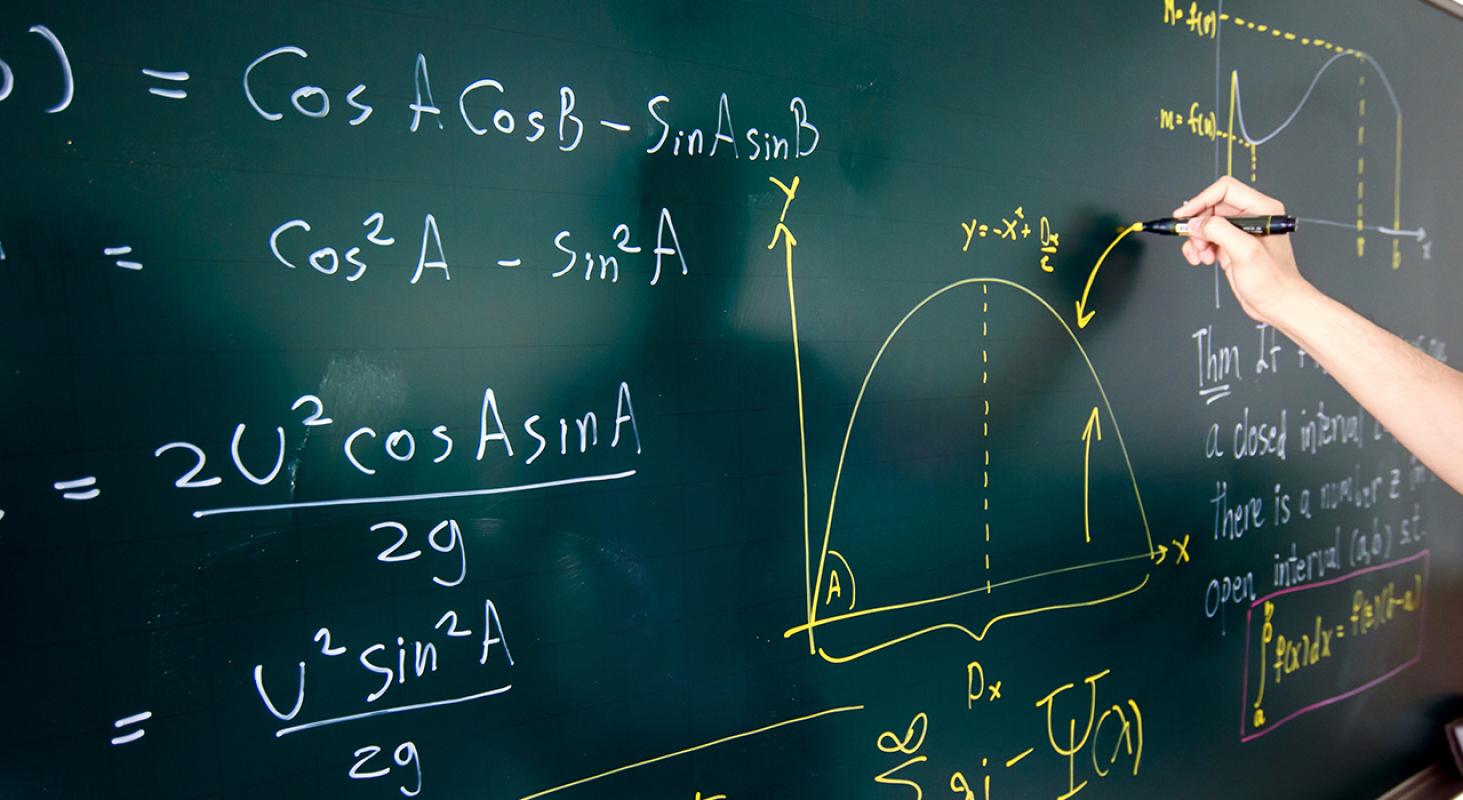 ) = Cos A CosB - SinAsinB
= Cos²A - Sin²A
= 2U²cosAsinA / 2g
= U²Sin²A / 2g
Y
y = -x² +
A
X
Dx
∞
Ψ(λ)
M = f(
m = f(
x
b
Thm If
a closed interval
there is a number z in
open interval (a,b) s.t.
∫ₐᵇ f(x)dx = f(z)(b-a)